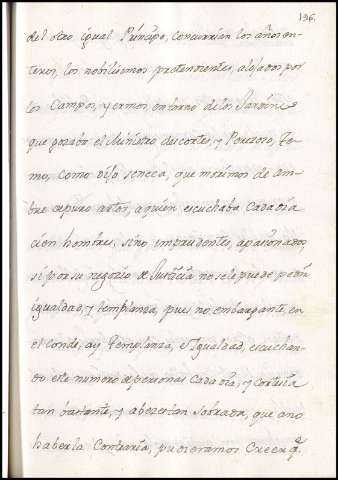 196.
del otro igual Príncipe, concurrían los años en-
teros, los nobilísimos pretendientes, alojados por
los Campos, y yermos, en torno de los Jardines
que gozaba el Ministro descortés, y Perezoso, Co-
mo, como dijo seneca, que morimos de am-
bre a quien escuchaba Cada día
cien hombres, sino imprudentes, apasionados,
si por su negocio de Justicia no sele puede pedir
igualdad, y templanza, pues no embargante, en
el Conde, ay Templanza, e Igualdad, escuchan-
do este numero de personas Cada día, y cortesía
tan bastante, y Sobrada, que ano
haberla Contraria, pudieramos Creer q.